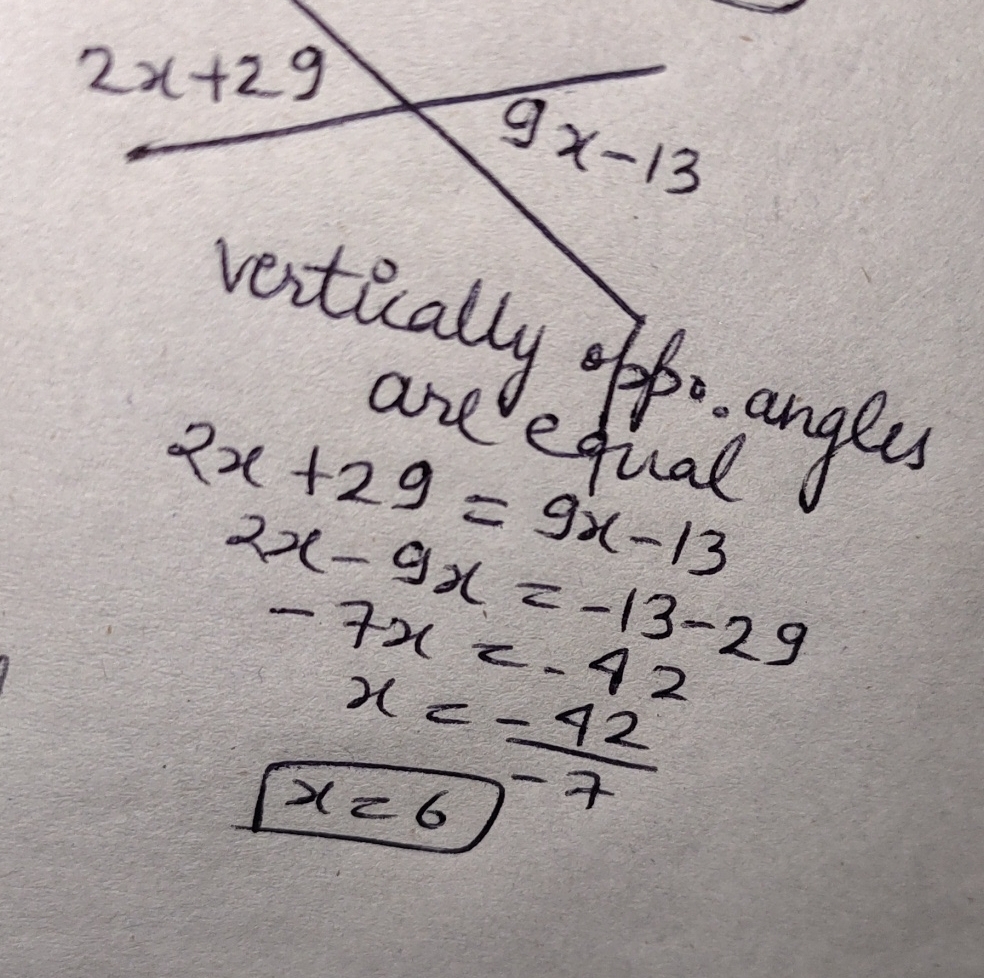 2x+29
9x-13
vertically oppo. angles
are equal
2x+29 = 9x-13
2x-9x = -13-29
-7x = -42
x = -42
-7
x=6